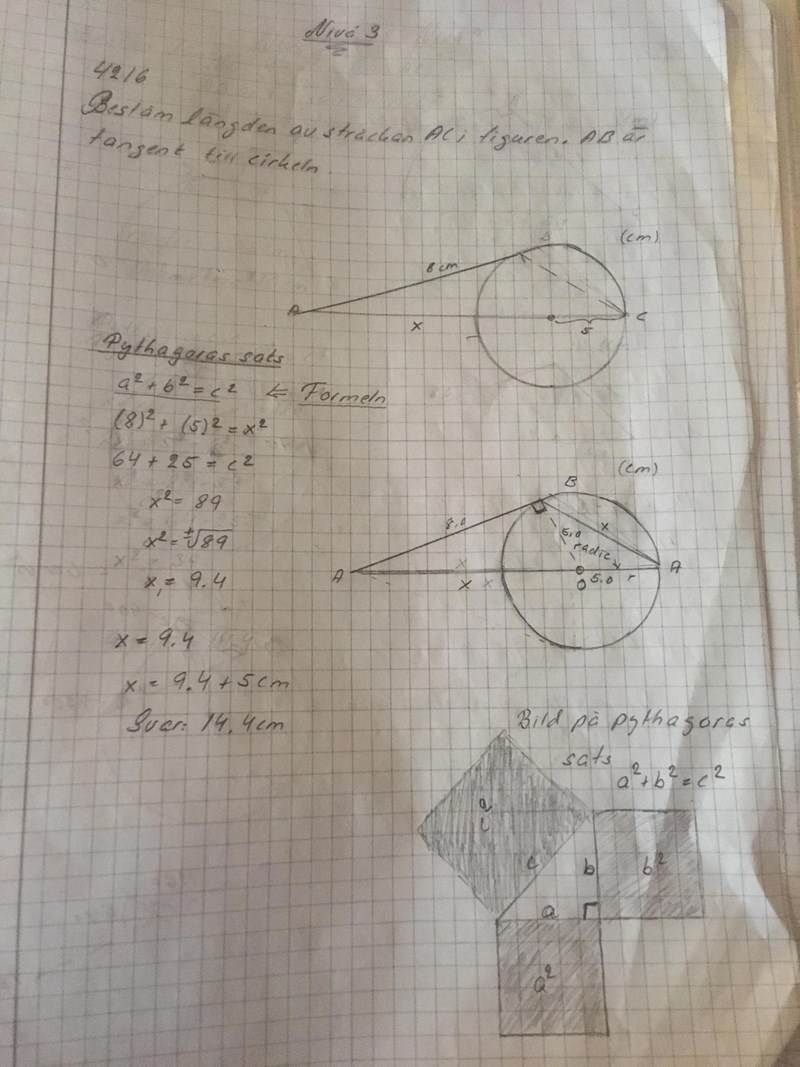 Nivå 3
4216
Bestäm längden av sträckan AC i figuren. AB är
tangent till cirkeln.
(cm)
B
8 cm
A
x
5
C
Pythagoras sats
a² + b² = c² ⇐ Formeln
(8)² + (5)² = x²
64 + 25 = c²
x² = 89
x² = ±√89
x₁ = 9.4
x = 9.4
x = 9.4 + 5 cm
Svar: 14,4 cm
(cm)
B
8,0
x
5,0
radie
A
x
x
x
O
5.0
r
A
Bild på pythagoras
sats
a² + b² = c²
c²
c
b
b²
a
a²